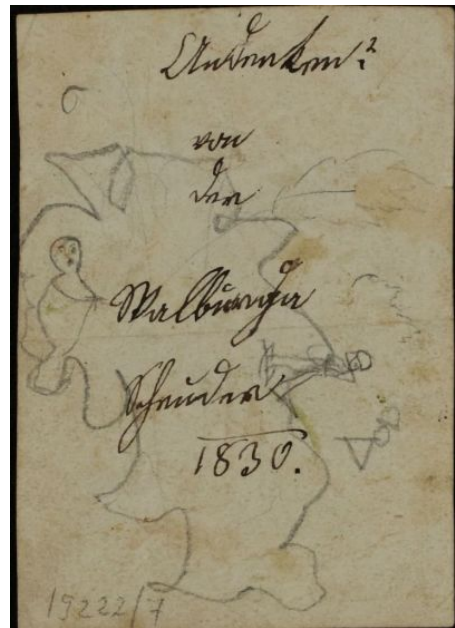 Andenken.
von
der
Walburga
Schruder
1830.
19222/7